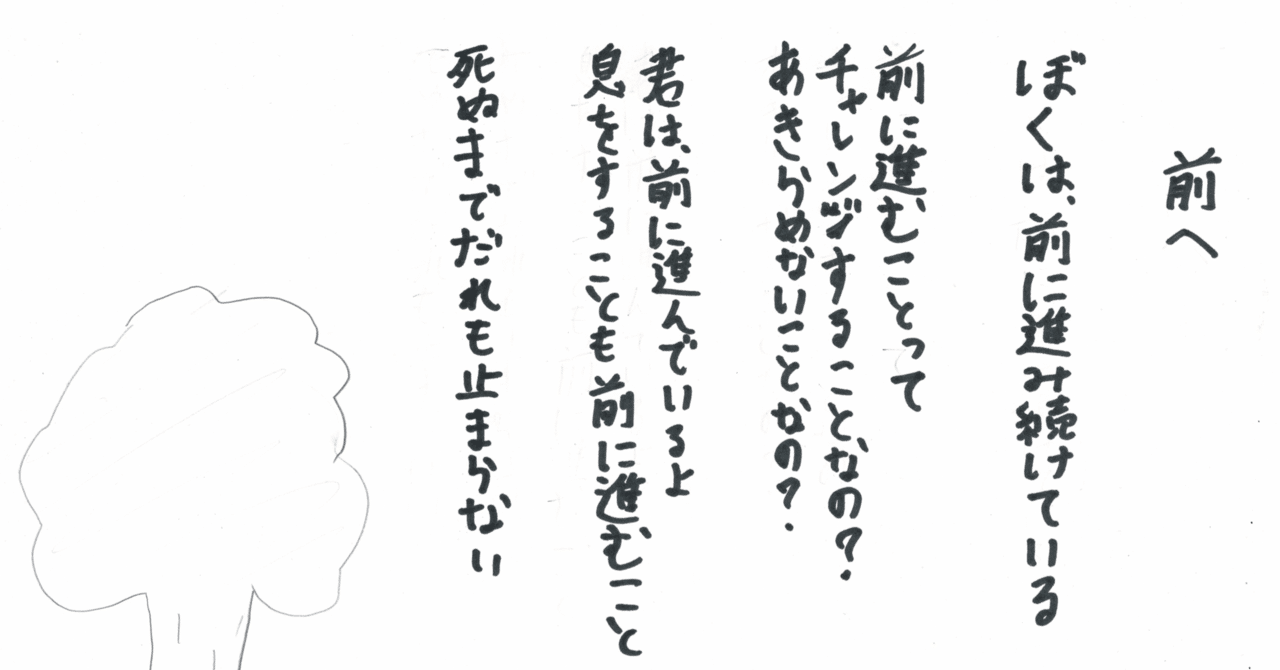 前へ
ぼくは、前に進み続けている
前に進むことって
チャレンジすることなの?
あきらめないことなの?
君は、前に進んでいるよ
息をすることも前に進むこと
死ぬまでだれも止まらない